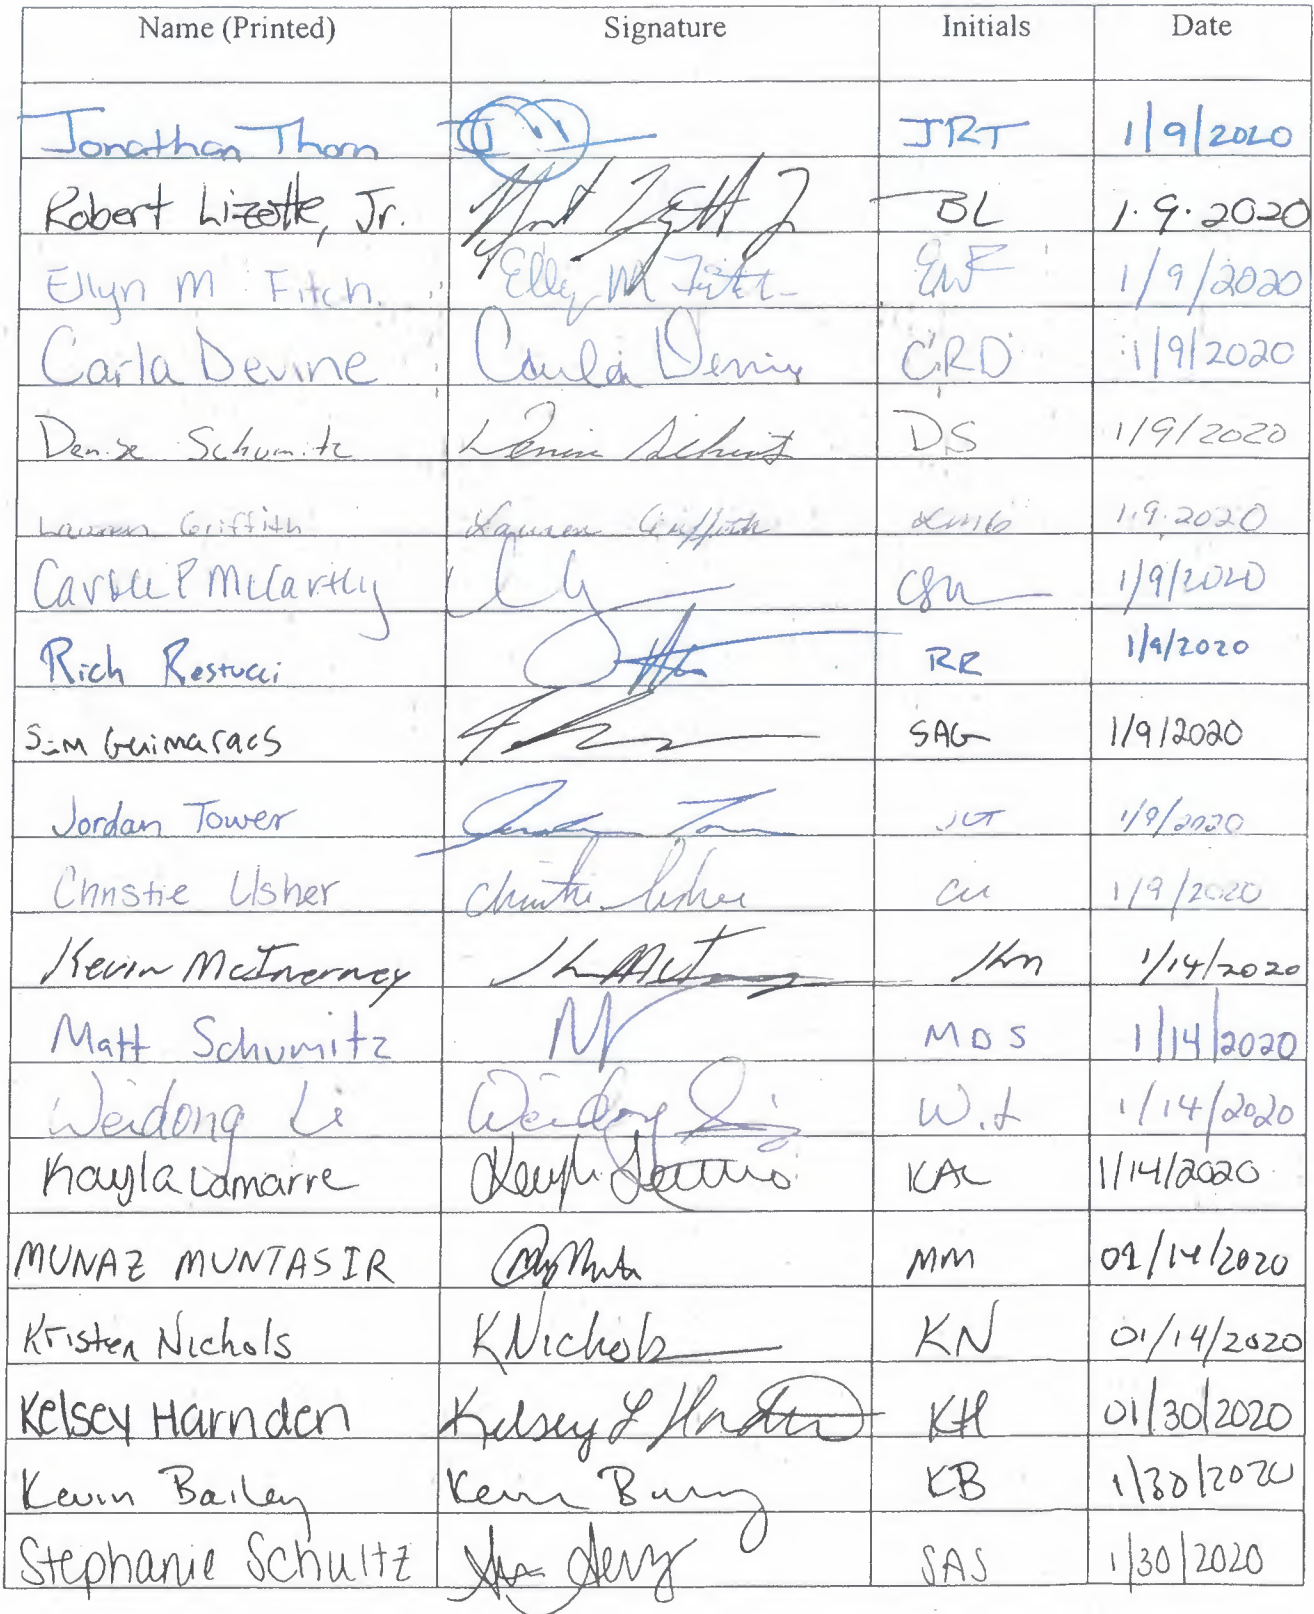 Name (Printed) Signature Initials Date
Jonathan Thorn JRT 1/9/2020
Robert Lizotte, Jr. BL 1.9.2020
Ellyn M Fitch Ellyn M Fitch 1/9/2020
Carla Devine Carla Devine CRD 1/9/2020
Denise Schumitz Denise Schumitz DS 1/9/2020
Lauren Griffith Lauren Griffith 1.9.2020
McCarthy 1/9/2020
Rich Restucci RR 1/9/2020
Guimaraes SAG 1/9/2020
Jordan Tower Jordan Tower 1/9/2020
Christie Usher Christie Usher CU 1/9/2020
Kevin McInerney KM 1/14/2020
Matt Schumitz MDS 1/14/2020
Weidong Li Weidong Li W.L 1/14/2020
Kayla Lamarre KAL 1/14/2020
MUNAZ MUNTASIR MM 01/14/2020
Kristen Nichols KNichols KN 01/14/2020
Kelsey Harnden Kelsey L Harnden KH 01/30/2020
Kevin Bailey Kevin KB 1/30/2020
Stephanie Schultz SAS 1/30/2020